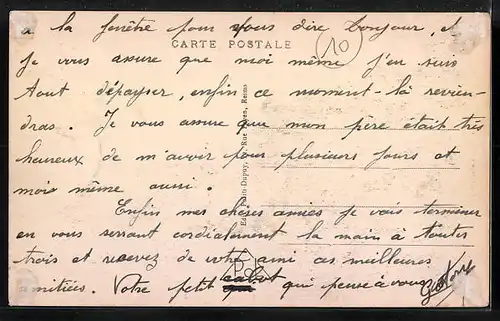 à la fenêtre pour vous dire bonjour, et
CARTE POSTALE
10
je vous assure que moi même j'en suis
tout dépayser, enfin ce moment-là revien-
dras. Je vous assure que mon père était très
heureux de m'avoir pour plusieurs jours et
mois même aussi.
Enfin mes chères amies je vais terminer
en vous serrant cordialement la main à toutes
trois et recevez de votre ami ces meilleures
amitiées. Votre petit cabot qui pense à vous
Gaston
Dupuy, Rue Reims